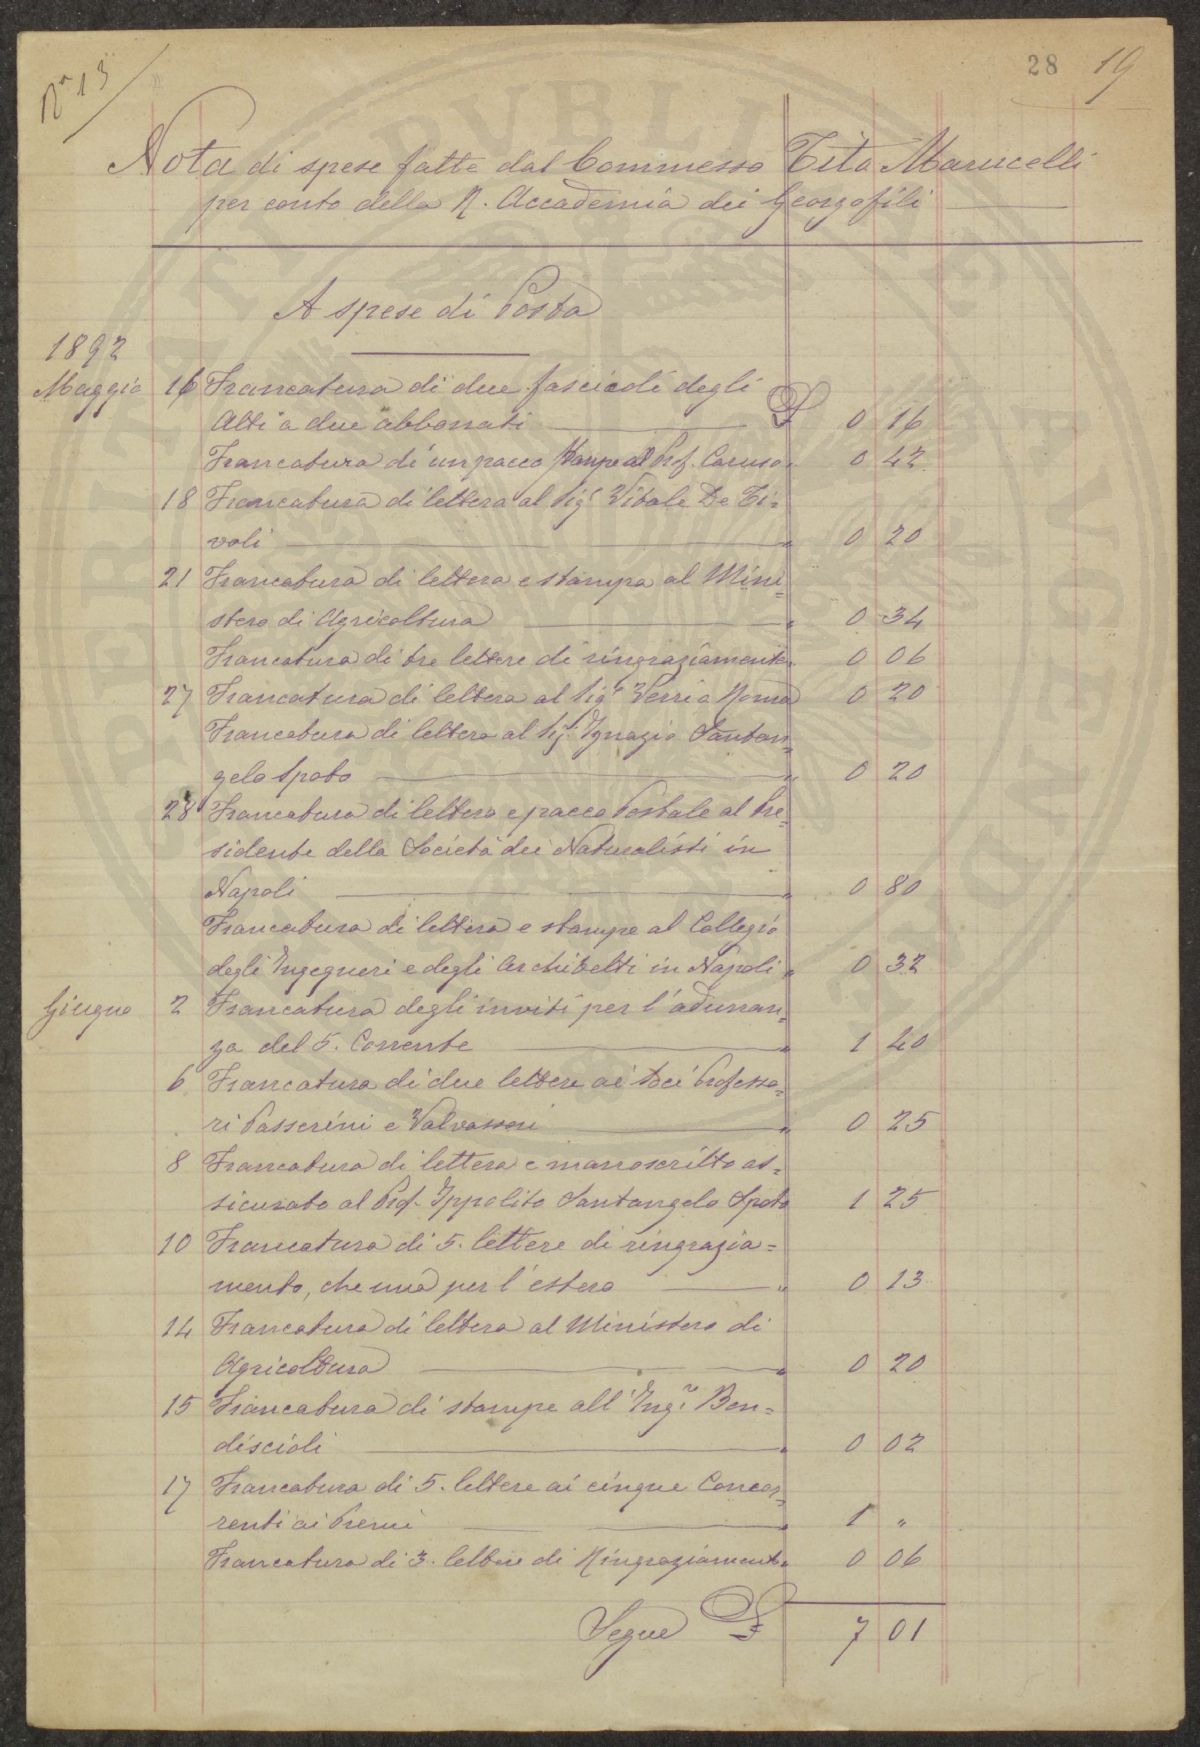 Nº 13
28 19
Nota di spese fatte dal Commesso Tito Marucelli
per conto della R. Accademia dei Georgofili
A spese di Posta
1892
Maggio 16 Francatura di due fascicoli degli
Atti a due abbonati £ 0 16
Francatura di un pacco stampe al Prof. Caruso " 0 42
18 Francatura di lettera al Sigr Vitale De Ti=
voli " 0 20
21 Francatura di lettera e stampa al Mini=
stero di Agricoltura " 0 34
Francatura di tre lettere di ringraziamento " 0 06
27 Francatura di lettera al Sigr Perrio Roma 0 20
Francatura di lettera al Sigr Ignazio Santan=
gelo Spoto " 0 20
28 Francatura di lettera e pacco Postale al Pre=
sidente della Società dei Naturalisti in
Napoli " 0 80
Francatura di lettera e stampe al Collegio
degli Ingegneri e degli Architetti in Napoli " 0 32
Giugno 2 Francatura degli inviti per l'adunan=
za del 5. Corrente " 1 40
6 Francatura di due lettere ai Soci Professo=
ri Passerini e Valvassori " 0 25
8 Francatura di lettera e manoscritto as=
sicurato al Prof. Ippolito Santangelo Spoto 1 25
10 Francatura di 5. lettere di ringrazia=
mento, che una per l'estero " 0 13
14 Francatura di lettera al Ministero di
Agricoltura " 0 20
15 Francatura di stampe all'Ingre Ben=
discioli " 0 02
17 Francatura di 5. lettere ai cinque Concor=
renti ai Premi " 1 "
Francatura di 3. lettere di Ringraziamento " 0 06
Segue £ 7 01